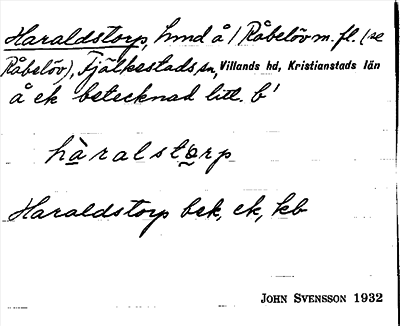 Haraldstorp, hmd å 1 Råbelöv m. fl. (se
Råbelöv), Fjälkestads sn, Villands hd, Kristianstads län
å ek betecknad litt. b¹
hàralstorp
Haraldstorp bek, ek, kb
JOHN SVENSSON 1932